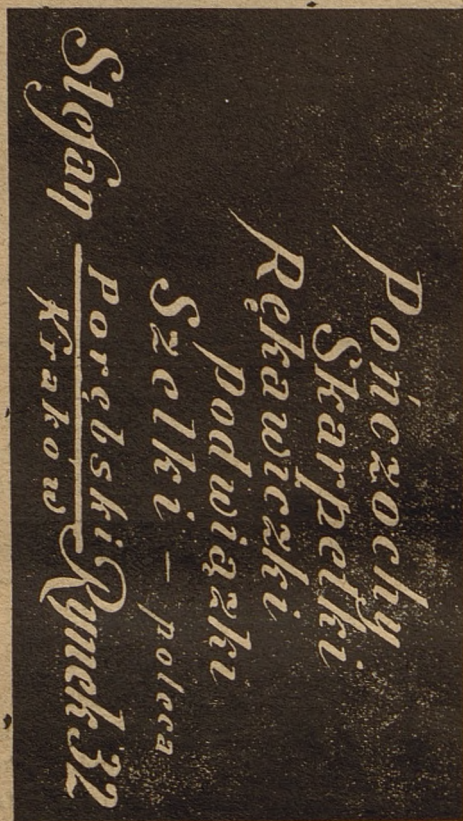 Pończochy
Skarpetki
Rękawiczki
Podwiązki
Szelki - poleca
Stefan Porębski
Kraków Rynek 32